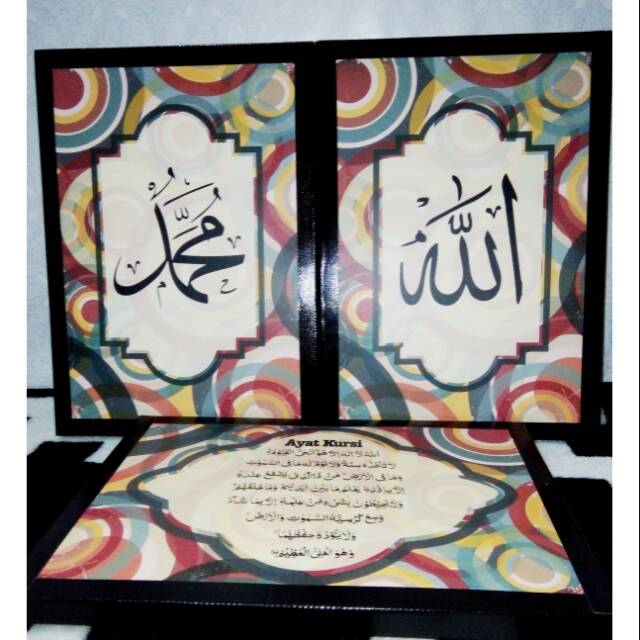 الله
محمد
Ayat Kursi
الله لا اله الا هو الحي القيوم
لا تأخذه سنة ولا نوم له ما في السموت
وما في الارض من ذا الذي يشفع عنده
الا باذنه يعلم ما بين ايديهم وما خلفهم
ولا يحيطون بشيء من علمه الا بما شاء
وسع كرسيه السموت والارض
ولا يؤده حفظهما
وهو العلي العظيم